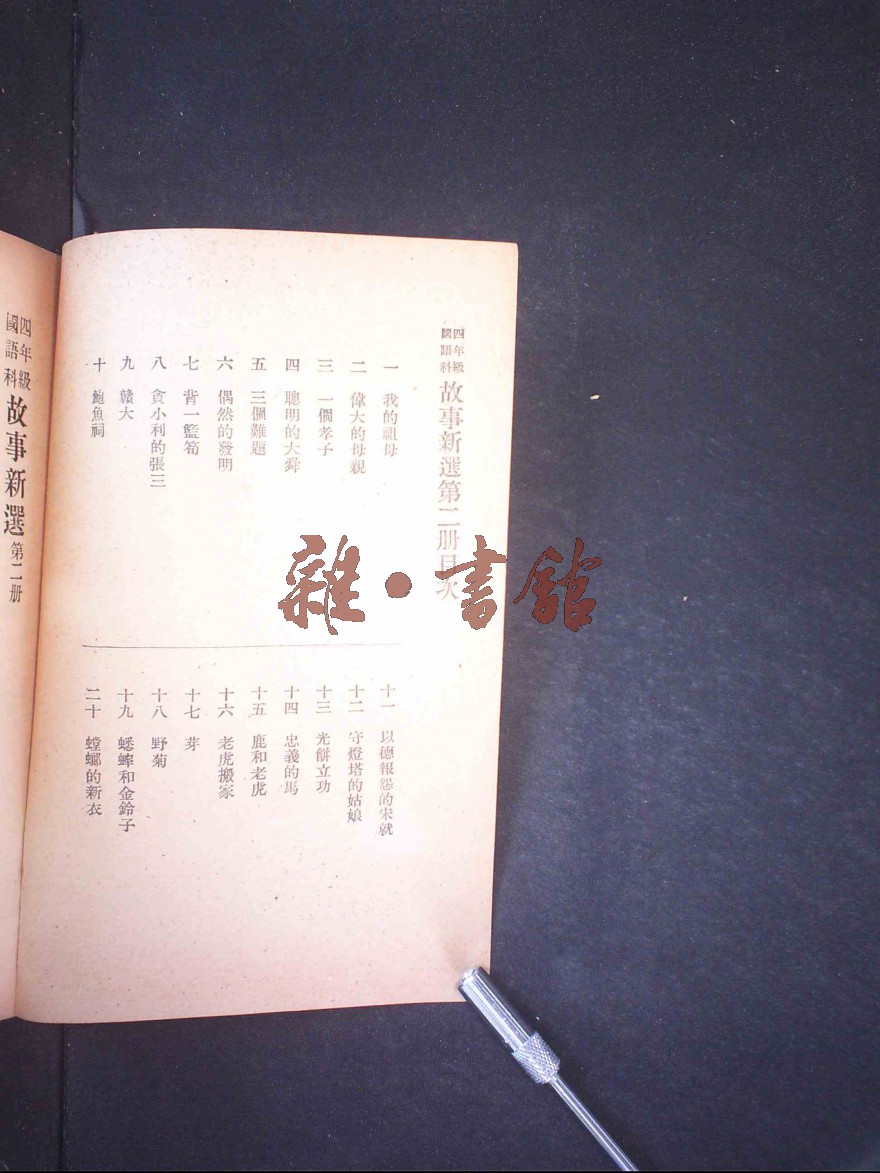 四年級
國語科
故事新選第二册目次
一 我的祖母
二 偉大的母親
三 一個孝子
四 聰明的大舜
五 三個難題
六 偶然的發明
七 背一籃筍
八 貪小利的張三
九 贛大
十 鮑魚祠
十一 以德報怨的宋就
十二 守燈塔的姑娘
十三 光餅立功
十四 忠義的馬
十五 鹿和老虎
十六 老虎搬家
十七 芽
十八 野菊
十九 蟋蟀和金鈴子
二十 螳螂的新衣
四年級
國語科
故事新選 第二册
雜·書館